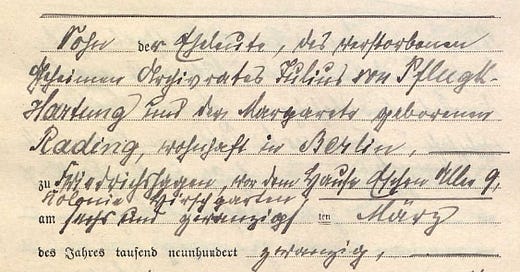 Sohn der Eheleute, des verstorbenen
Geheimen Archivrates Julius von Pflugk-
Harttung und der Margarete geborenen
Rading, wohnhaft in Berlin,
zu Friedrichshagen, vor dem Hause Eschen Allee 9,
Kolonie Hirschgarten
am sechs und zwanzigsten März
des Jahres tausend neunhundert zwanzig,